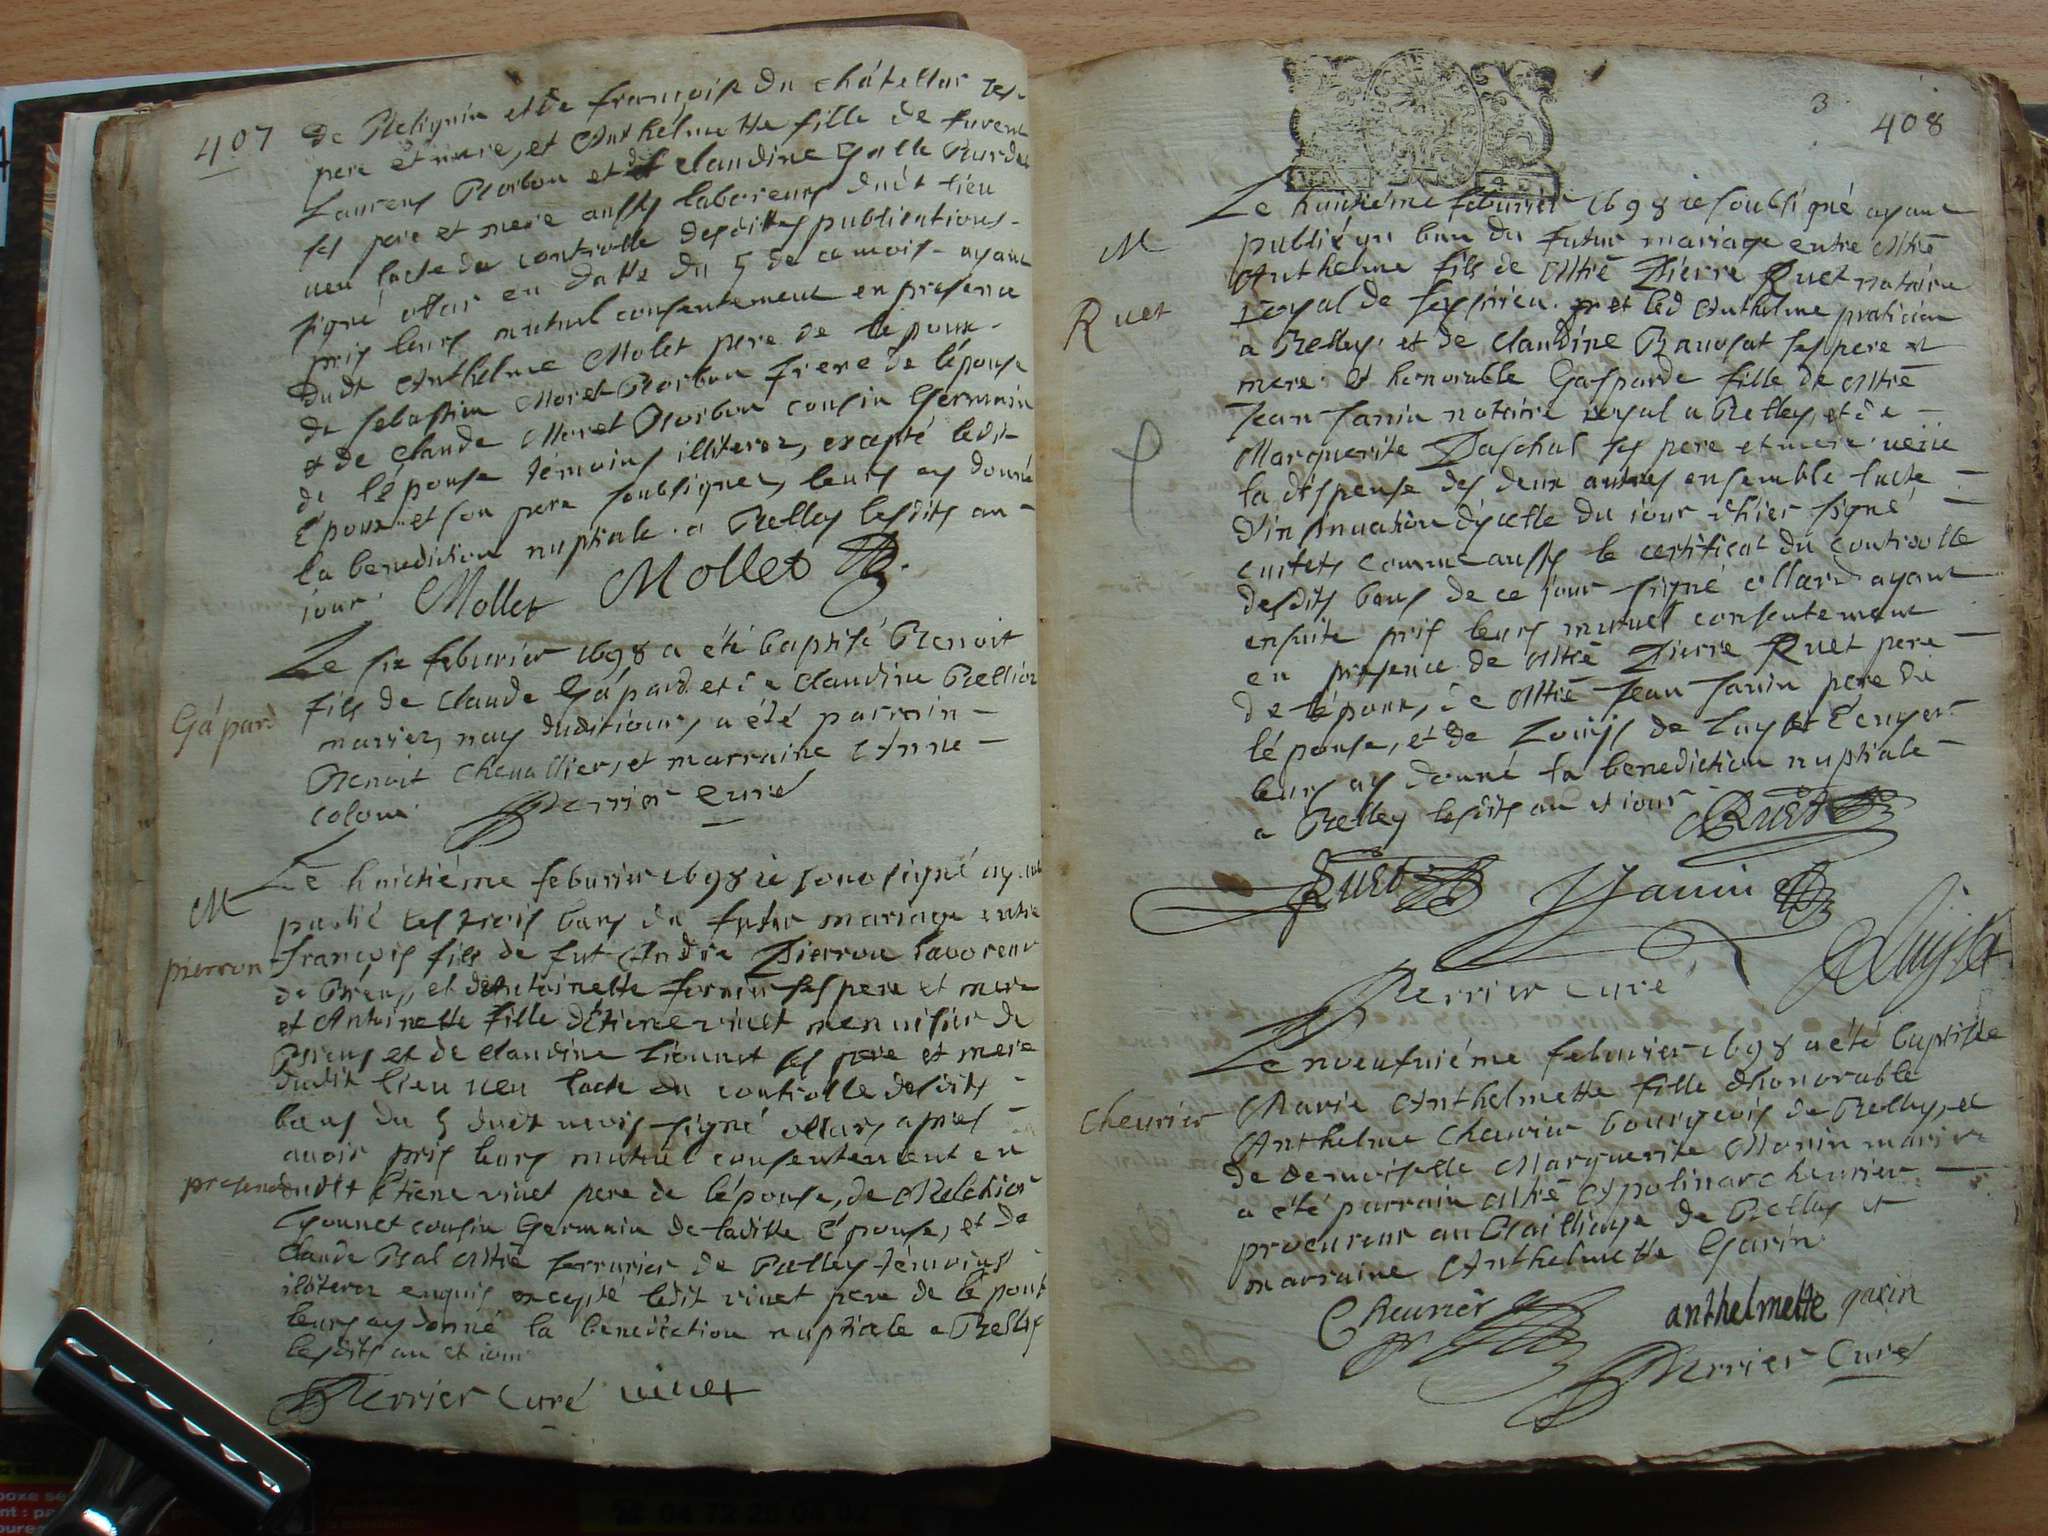 407
de Retignin et de françoise du châtellar ses
pere et mere, et Anthelmette fille de furent
Laurens Borbon et de claudine Galle Burdet
ses pere et mere aussy laboreurs dudt lieu
veu lacte du controlle desdittes publications
signé ollar en datte du 5 de ce mois ayant
pris leurs mutuel consentement en presence
dudt Anthelme Molet pere de lépoux
de sebastien Moret Borbon frere de lépouse
et de claude Moret Borbon cousin Germain
de lépouse témoins illiterez, excepté ledit
Epoux et son pere soubsignez, leurs ay donné
la benediction nuptiale a Belley lesdits an
jour. Mollet Mollet
Gápard
Le six feburier 1698 a été baptisé Benoit
fils de claude Gápard et de claudine Bellior
mariez, nay duditjour, a été parrain
Benoit Chevallier, et marraine Anne
colom. Perrier curé
M
pierron
Le huictiéme feburier 1698 ie soubsigné ayant
publié les trois bans du futur mariage entre
françois fils de fut André Pierron laboreur
de Brens, et dAntoinette fornier ses pere et mere
et Antoinette fille détiene vinet menuisier de
Brens et de claudine Lionnet ses pere et mere
dudit lieu veu lacte du controlle desdits
bans du 5 dudt mois signé ollar, apres
avoir pris leurs mutuel consentement en
presence dudit Etiene vinet pere de lépouse, de Melchior
Lyonnet cousin Germain de laditte Epouse, et de
claude Bal Mtre serrurier de Belley témoins
illiterez enquis excepté ledit vinet pere de lépouse
leurs ay donné la benediction nuptiale a Belley
lesdits an et iour
Perrier curé vinet
3
408
M
Ruet
Le huitiéme feburier 1698 ie soubsigné ayant
publié un ban du futur mariage entre Mtre
Anthelme fils de Mtre Pierre Ruet notaire
royal de et led Anthelme praticien
a Belley. et de claudine Ravosat ses pere et
mere. et honorable Gasparde fille de Mtre
Jean Janin notaire royal a Belley, et de
Marguerite Paschal ses pere et mere. veüe
la dispense des deux autres ensemble lacte
dinsinuation dycelle du iour dhier signé
comme aussy le certificat du controolle
desdits bans de ce jour signé ollard ayant
ensuite pris leurs mutuel consentement
en presence de Mtre Pierre Ruet pere
de lépoux, de Mtre Jean Janin pere de
lépouse, et de Louys de Luyset Ecuyer
leurs ay donné la benediction nuptiale
a Belley lesdits an et iour. Ruet
Ruet Janin
Perrier curé DLuyset
Chevrier
Le neufuiéme febvrier 1698 a été baptisée
Marie Anthelmette fille dhonorable
Anthelme Chevrier bourgeois de Belley, et
de demoiselle Marguerite Monin mariez
a été parrain Mtre Apolinar chevrier
procureur au Bailliage de Belley et
marraine Anthelmette Garin
Chevrier anthelmette garin
Perrier Curé